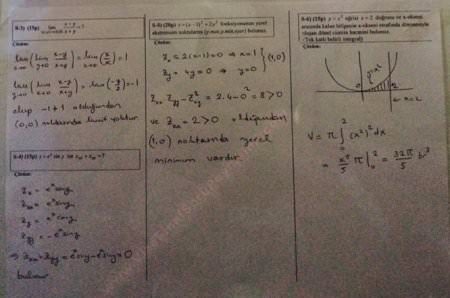 S-3) (15p) lim x-y / x+y = ?
Çözüm:
lim (lim x-y / x+y) = lim (x/x) = 1
x→0 y→0 x→0
lim (lim x-y / x+y) = lim (-y/y) = -1
y→0 x→0
olup -1≠1 olduğundan
(0,0) noktasında limit yoktur.
S-4) (15p) z = eˣ sin y ise zₓₓ + z_yy = ?
Çözüm:
zₓ = eˣ siny
zₓₓ = eˣ siny
z_y = eˣ cosy
z_yy = -eˣ siny
⇒ zₓₓ + z_yy = eˣ siny - eˣ siny = 0
bulunur
S-5) (20p) z = (x-1)² + 2y² fonksiyonunun yerel
ekstremum noktalarını (y.max,y.min,eyer) bulunuz.
Çözüm:
zₓ = 2(x-1) = 0 ⇒ x=1
z_y = 4y = 0 ⇒ y=0 } (1,0)
zₓₓ z_yy - z²ₓy = 2.4-0² = 8 > 0
ve zₓₓ = 2 > 0 olduğundan
(1,0) noktasında yerel
minimum vardır.
S-6) (25p) y = x² eğrisi x = 2 doğrusu ve x-ekseni
arasında kalan bölgenin x-ekseni etrafında dönmesiyle
oluşan dönel cismin hacmini bulunuz.
(Tek katlı belirli integral)
Çözüm:
y=x²
0
2
x=2
V = π ∫₀² (x²)² dx
= x⁵/5 π |₀² = 32π/5 br³